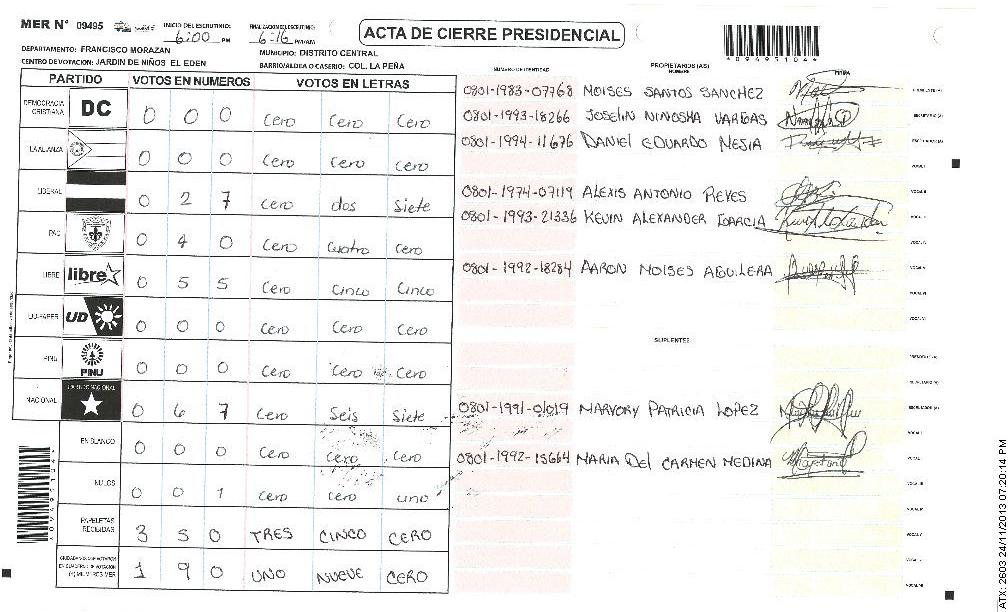 MER N° 09495 INICIO DEL ESCRUTINIO: 6:00 PM FINALIZACION DEL ESCRUTINIO: 6-16 PM/AM
ACTA DE CIERRE PRESIDENCIAL
*09495104*
DEPARTAMENTO: FRANCISCO MORAZAN MUNICIPIO: DISTRITO CENTRAL
CENTRO DE VOTACION: JARDIN DE NIÑOS EL EDEN BARRIO/ALDEA O CASERIO: COL. LA PEÑA
PARTIDO VOTOS EN NUMEROS VOTOS EN LETRAS
DEMOCRACIA CRISTIANA DC 0 0 0 Cero Cero Cero
LA ALIANZA 0 0 0 Cero Cero Cero
LIBERAL 0 2 7 Cero dos Siete
PAC 0 4 0 Cero Cuatro Cero
LIBRE libre 0 5 5 Cero Cinco Cinco
UD-FAPER UD 0 0 0 Cero Cero Cero
PINU PINU 0 0 0 Cero Cero Cero
NACIONAL 0 6 7 Cero Seis Siete
EN BLANCO 0 0 0 Cero Cero Cero
NULOS 0 0 1 Cero Cero uno
PAPELETAS RECIBIDAS 3 5 0 TRES CINCO CERO
1 9 0 UNO NUEVE CERO
NUMERO DE IDENTIDAD PROPIETARIOS (AS) NOMBRE FIRMA
0801-1983-07768 MOISES SANTOS SANCHEZ
0801-1993-18266 JOSELIN NINOSHA VARGAS
0801-1994-11676 DANIEL EDUARDO MEJIA
0801-1974-07119 ALEXIS ANTONIO REYES
0801-1993-21336 KEVIN ALEXANDER GARCIA
0801-1992-18284 AARON MOISES AGUILERA
SUPLENTES
0801-1991-01019 MARVORY PATRICIA LOPEZ
0801-1992-15664 MARIA DEL CARMEN MEDINA
ATX: 2603 24/11/2013 07:20:14 PM